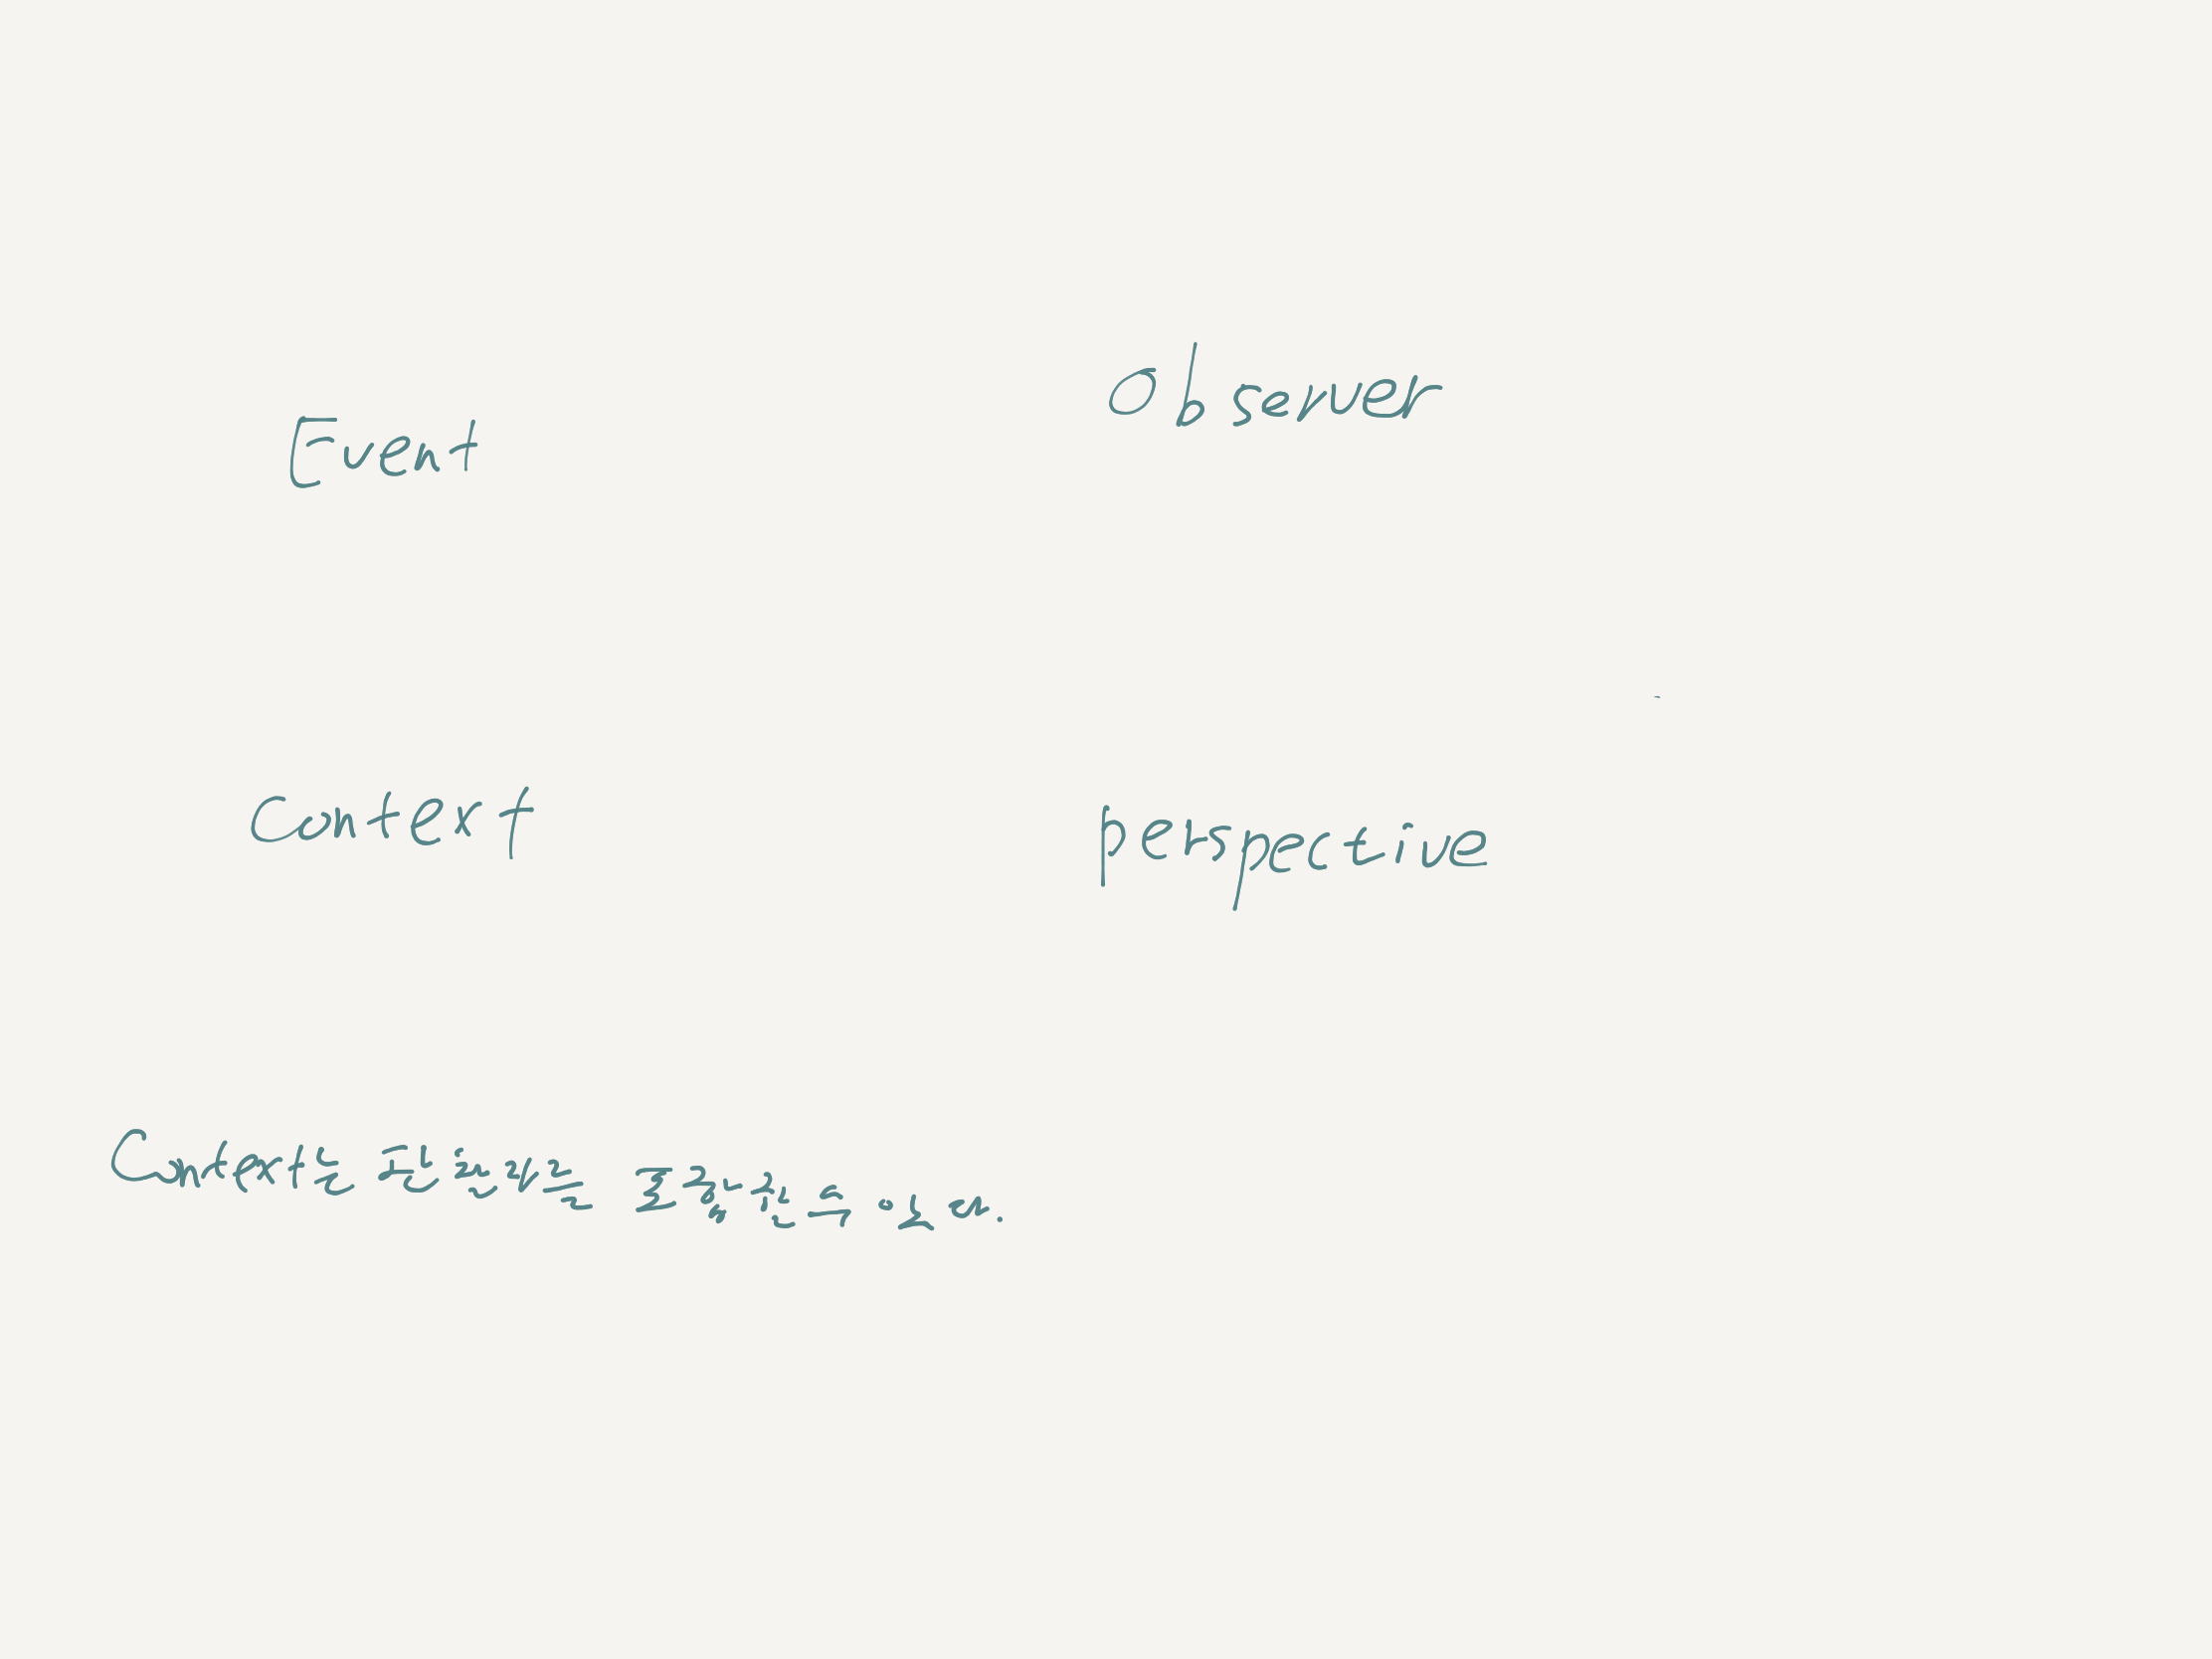 Event
Observer
Context
perspective
Context는 관찰자는 포함할 수 있다.